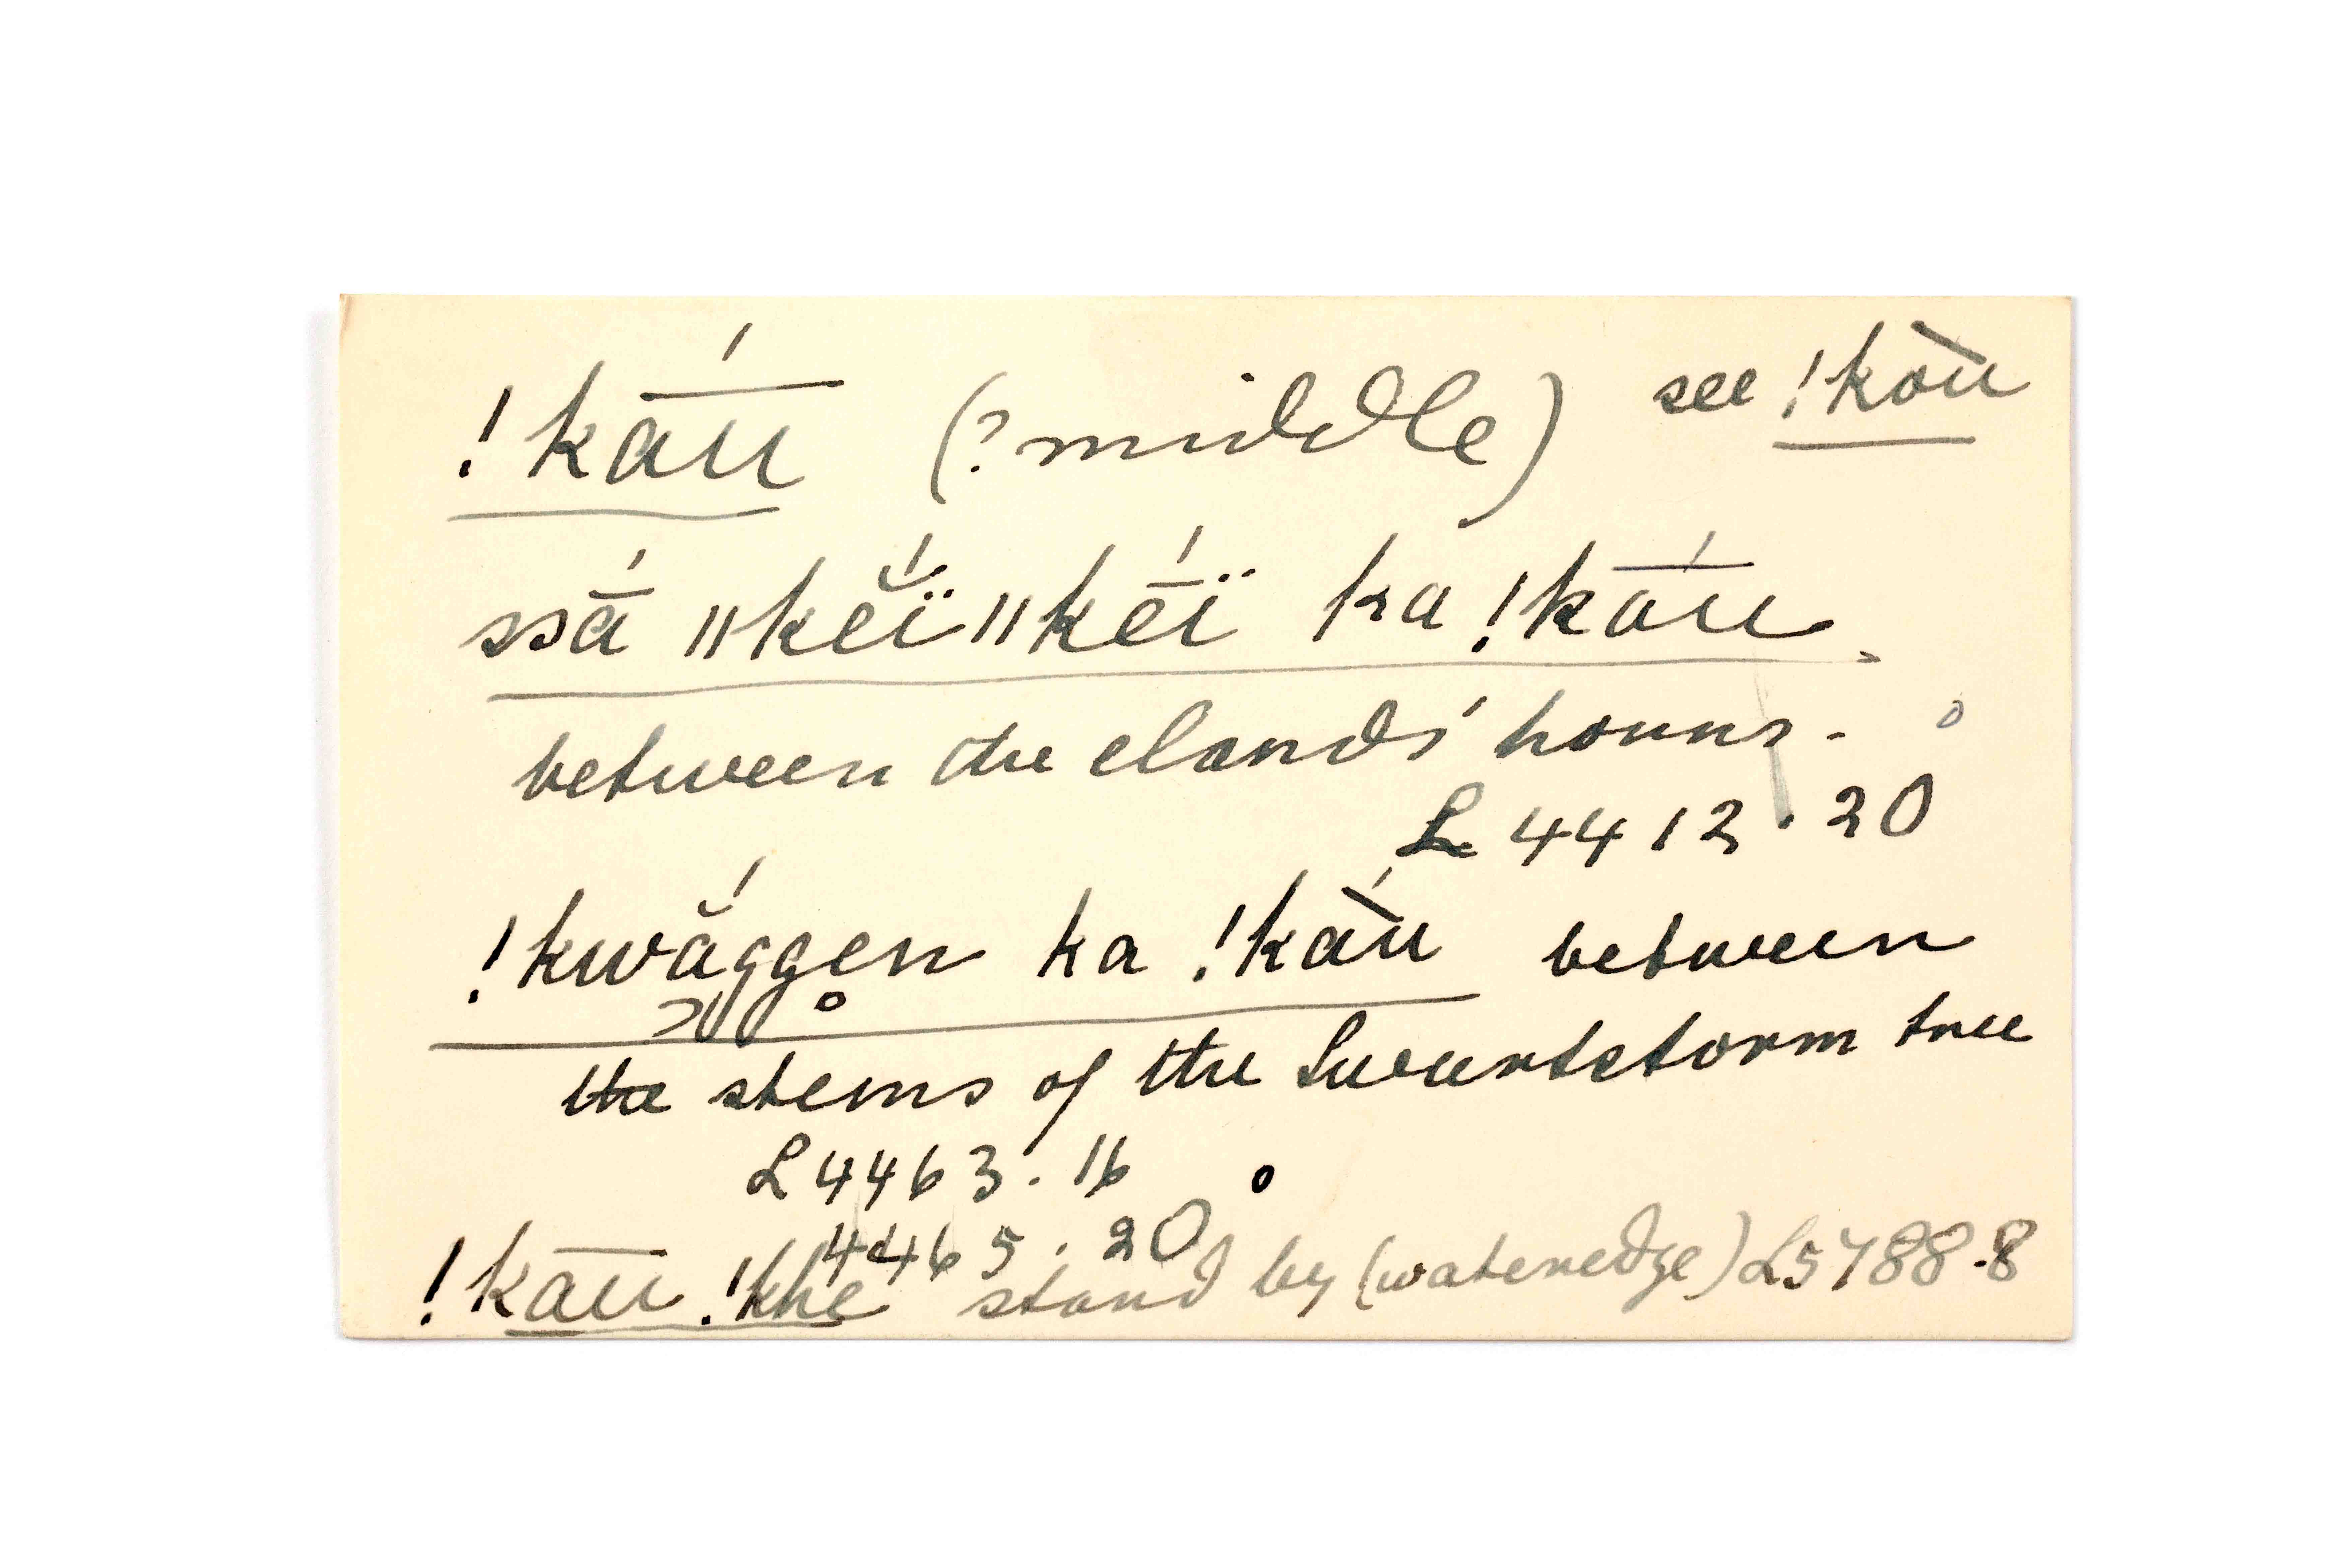 !kā́u (? middle) see !kòu
ssā́ ǁkĕ́ïǁkḗï ka !kā́u
between the elands' horns -
L 4412 . 20
!kwắggen ka !kàu between
the stems of the Swartstorm tree
L 4463 . 16
4465 . 20
!kāu !khe stand by (wateredge) L5788.8